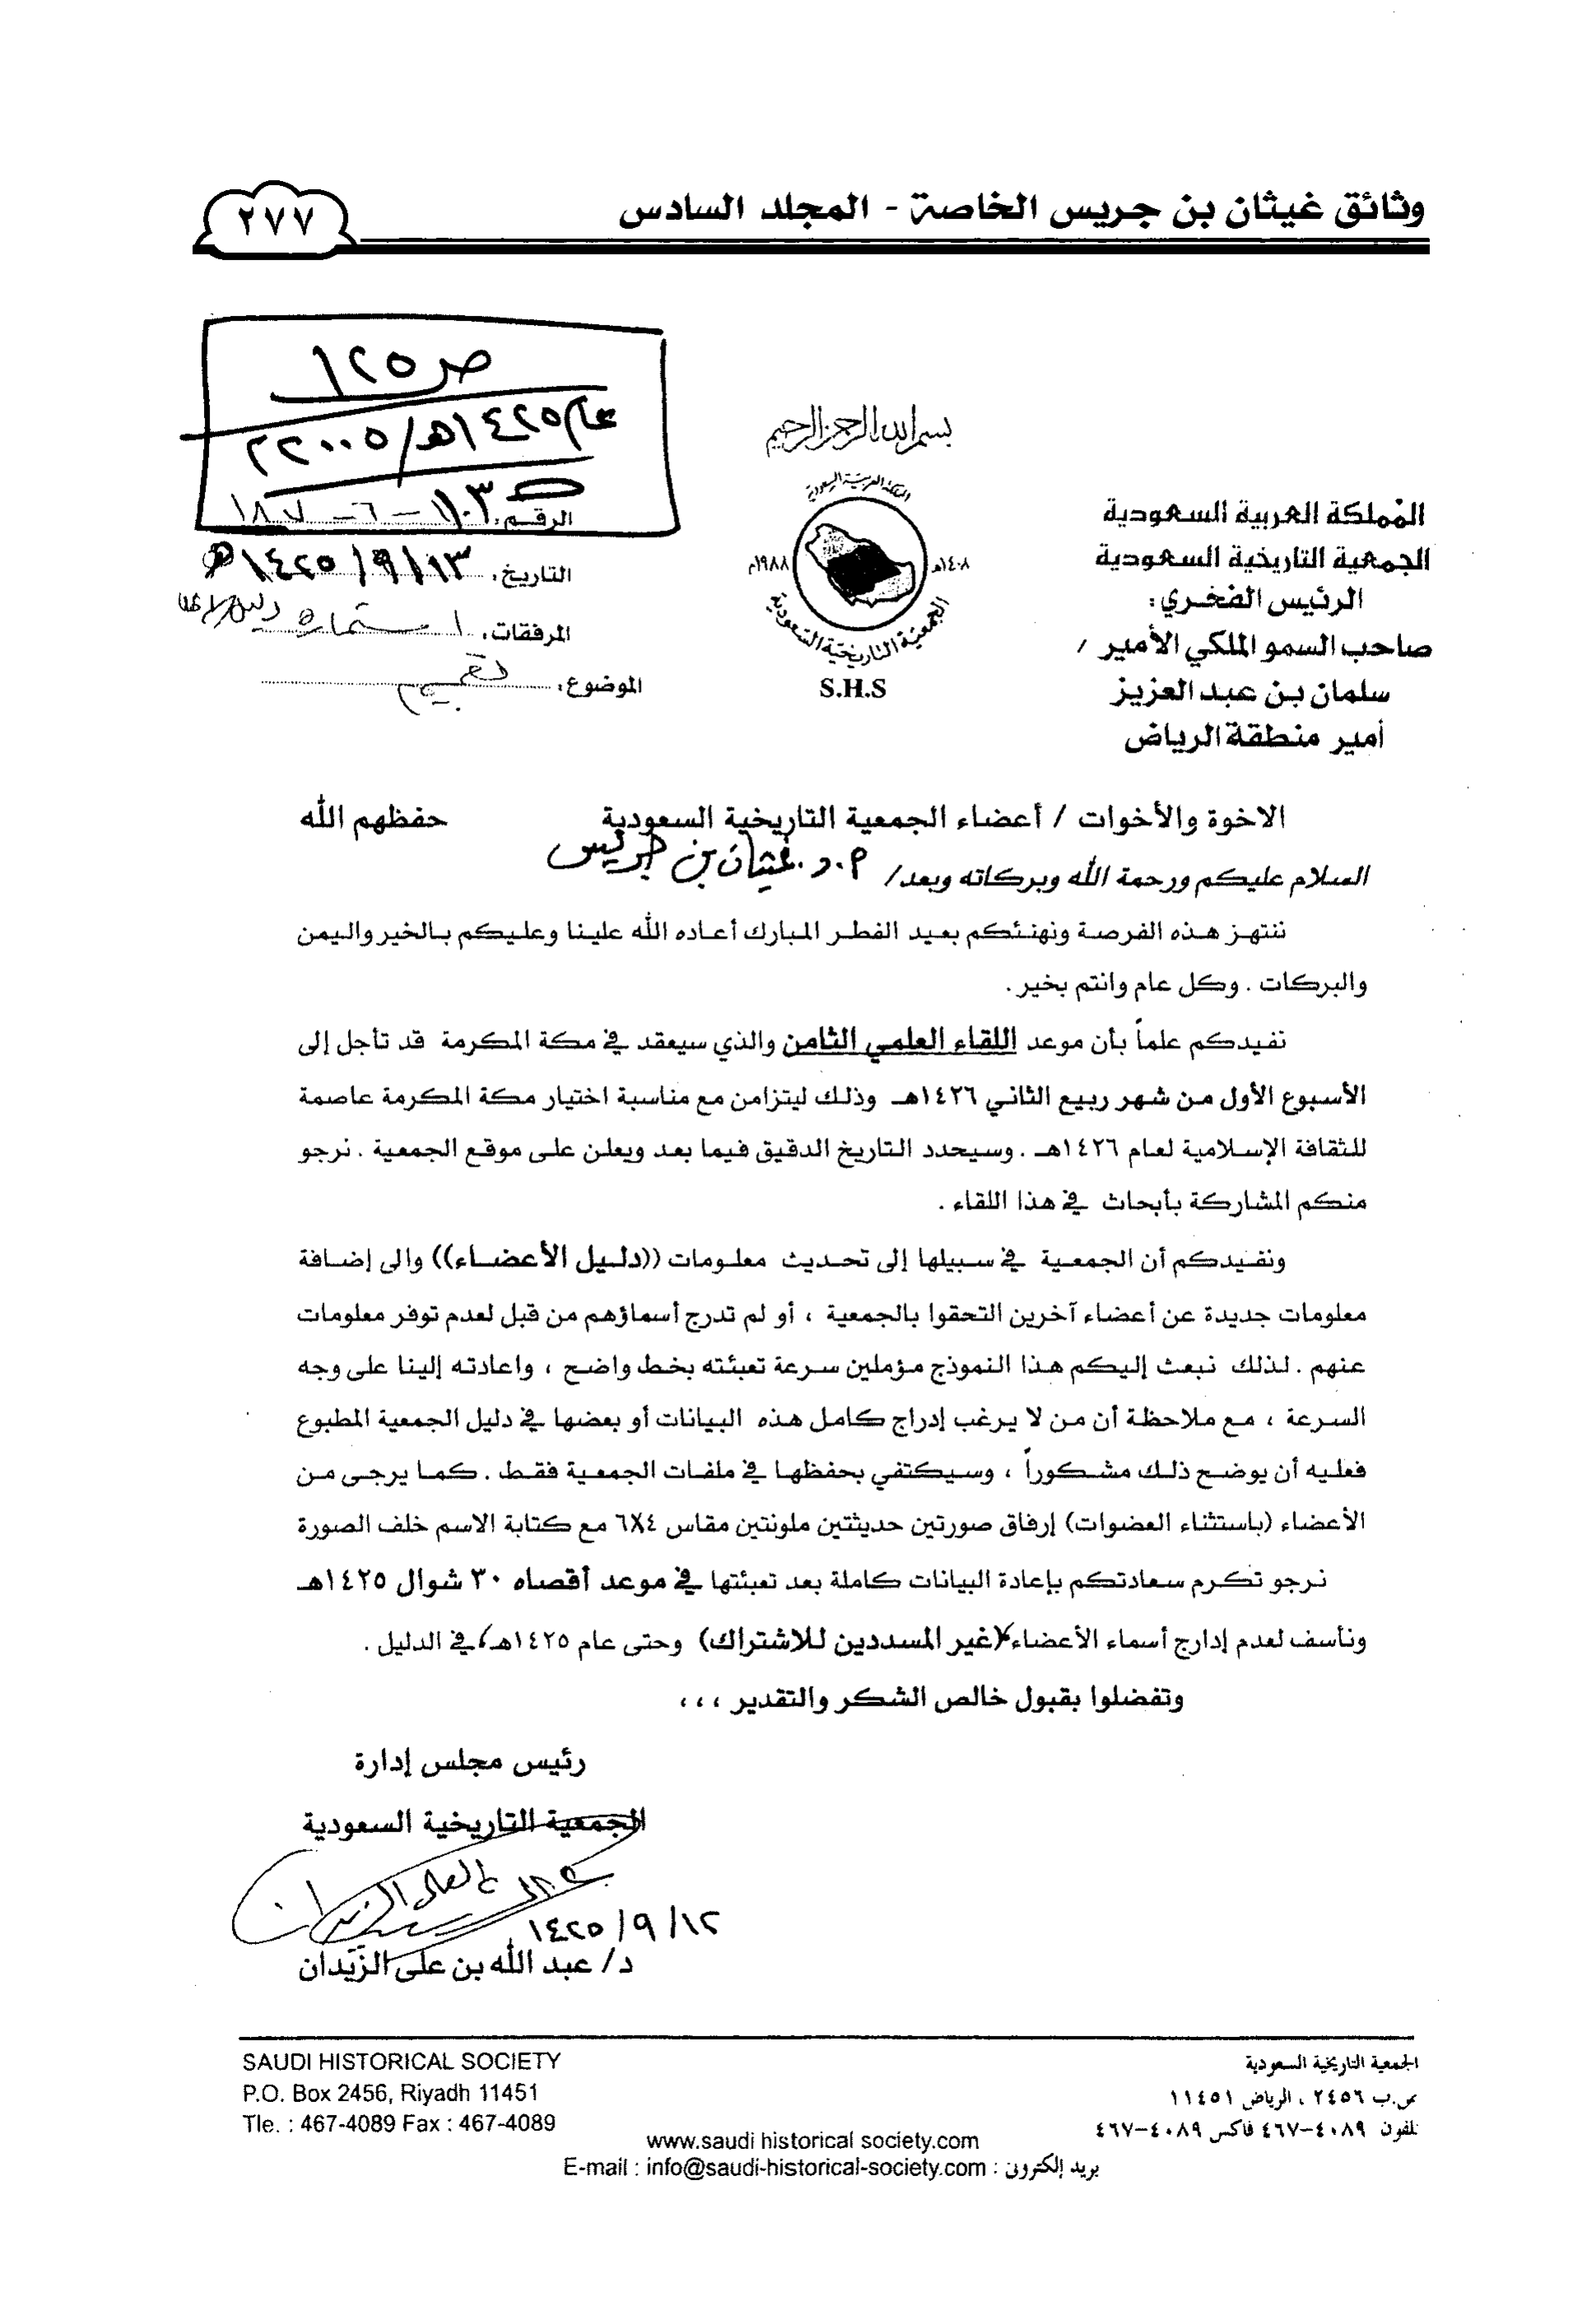 وثائق غيثان بن جريس الخاصة - المجلد السادس
٢٧٧
ص ١٢٥
عام ١٤٢٥هـ / ٢٠٠٥م
بسم الله الرحمن الرحيم
المملكة العربية السعودية
١٤٠٨هـ
١٩٨٨م
الجمعية التاريخية السعودية
S.H.S
المملكة العربية السعودية
الجمعية التاريخية السعودية
الرئيس الفخري:
صاحب السمو الملكي الأمير /
سلمان بن عبد العزيز
أمير منطقة الرياض
الرقم: ١٨٧ - ٦ - ١٠٣
التاريخ: ١٤٢٥/٩/١٣هـ
المرفقات: استمارة دليل الأعضاء
الموضوع: تعميم
الاخوة والأخوات / أعضاء الجمعية التاريخية السعودية حفظهم الله
السلام عليكم ورحمة الله وبركاته وبعد/ أ.د. غيثان بن جريس
ننتهز هذه الفرصة ونهنئكم بعيد الفطر المبارك أعاده الله علينا وعليكم بالخير واليمن
والبركات . وكل عام وانتم بخير .
نفيدكم علماً بأن موعد اللقاء العلمي الثامن والذي سيعقد في مكة المكرمة قد تأجل إلى
الأسبوع الأول من شهر ربيع الثاني ١٤٢٦هـ وذلك ليتزامن مع مناسبة اختيار مكة المكرمة عاصمة
للثقافة الإسلامية لعام ١٤٢٦هـ . وسيحدد التاريخ الدقيق فيما بعد ويعلن على موقع الجمعية . نرجو
منكم المشاركة بأبحاث في هذا اللقاء .
ونفيدكم أن الجمعية في سبيلها إلى تحديث معلومات ((دليل الأعضاء)) والى إضافة
معلومات جديدة عن أعضاء آخرين التحقوا بالجمعية ، أو لم تدرج أسماؤهم من قبل لعدم توفر معلومات
عنهم . لذلك نبعث إليكم هذا النموذج مؤملين سرعة تعبئته بخط واضح ، واعادته إلينا على وجه
السرعة ، مع ملاحظة أن من لا يرغب إدراج كامل هذه البيانات أو بعضها في دليل الجمعية المطبوع
فعليه أن يوضح ذلك مشكوراً ، وسيكتفي بحفظها في ملفات الجمعية فقط . كما يرجى من
الأعضاء (باستثناء العضوات) إرفاق صورتين حديثتين ملونتين مقاس ٤×٦ مع كتابة الاسم خلف الصورة
نرجو تكرم سعادتكم بإعادة البيانات كاملة بعد تعبئتها في موعد أقصاه ٣٠ شوال ١٤٢٥هـ
ونأسف لعدم إدارج أسماء الأعضاء (غير المسددين للاشتراك) وحتى عام ١٤٢٥هـ) في الدليل .
وتفضلوا بقبول خالص الشكر والتقدير ،،،
رئيس مجلس إدارة
الجمعية التاريخية السعودية
١٤٢٥/٩/١٢
د/ عبد الله بن على الزيدان
SAUDI HISTORICAL SOCIETY
P.O. Box 2456, Riyadh 11451
Tle. : 467-4089 Fax : 467-4089
الجمعية التاريخية السعودية
ص.ب ٢٤٥٦ ، الرياض ١١٤٥١
تلفون ٤٠٨٩-٤٦٧ فاكس ٤٠٨٩-٤٦٧
www.saudi historical society.com
E-mail : info@saudi-historical-society.com : بريد إلكترونى